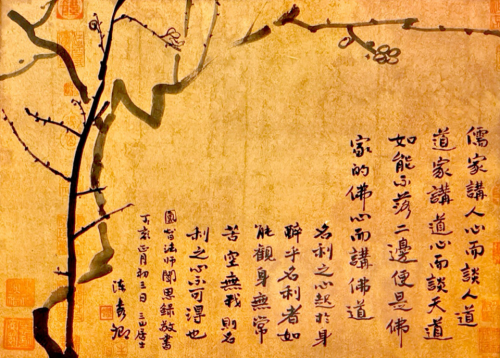 儒家講人心而談人道
道家講道心而談天道
如能不落二邊便是佛
家的佛心而講佛道
名利之心起於身
醉乎名利者如
能觀身無常
苦空無我則名
利之心不可得也
法師聞思錄敬書
丁亥正月初三日 三山居士